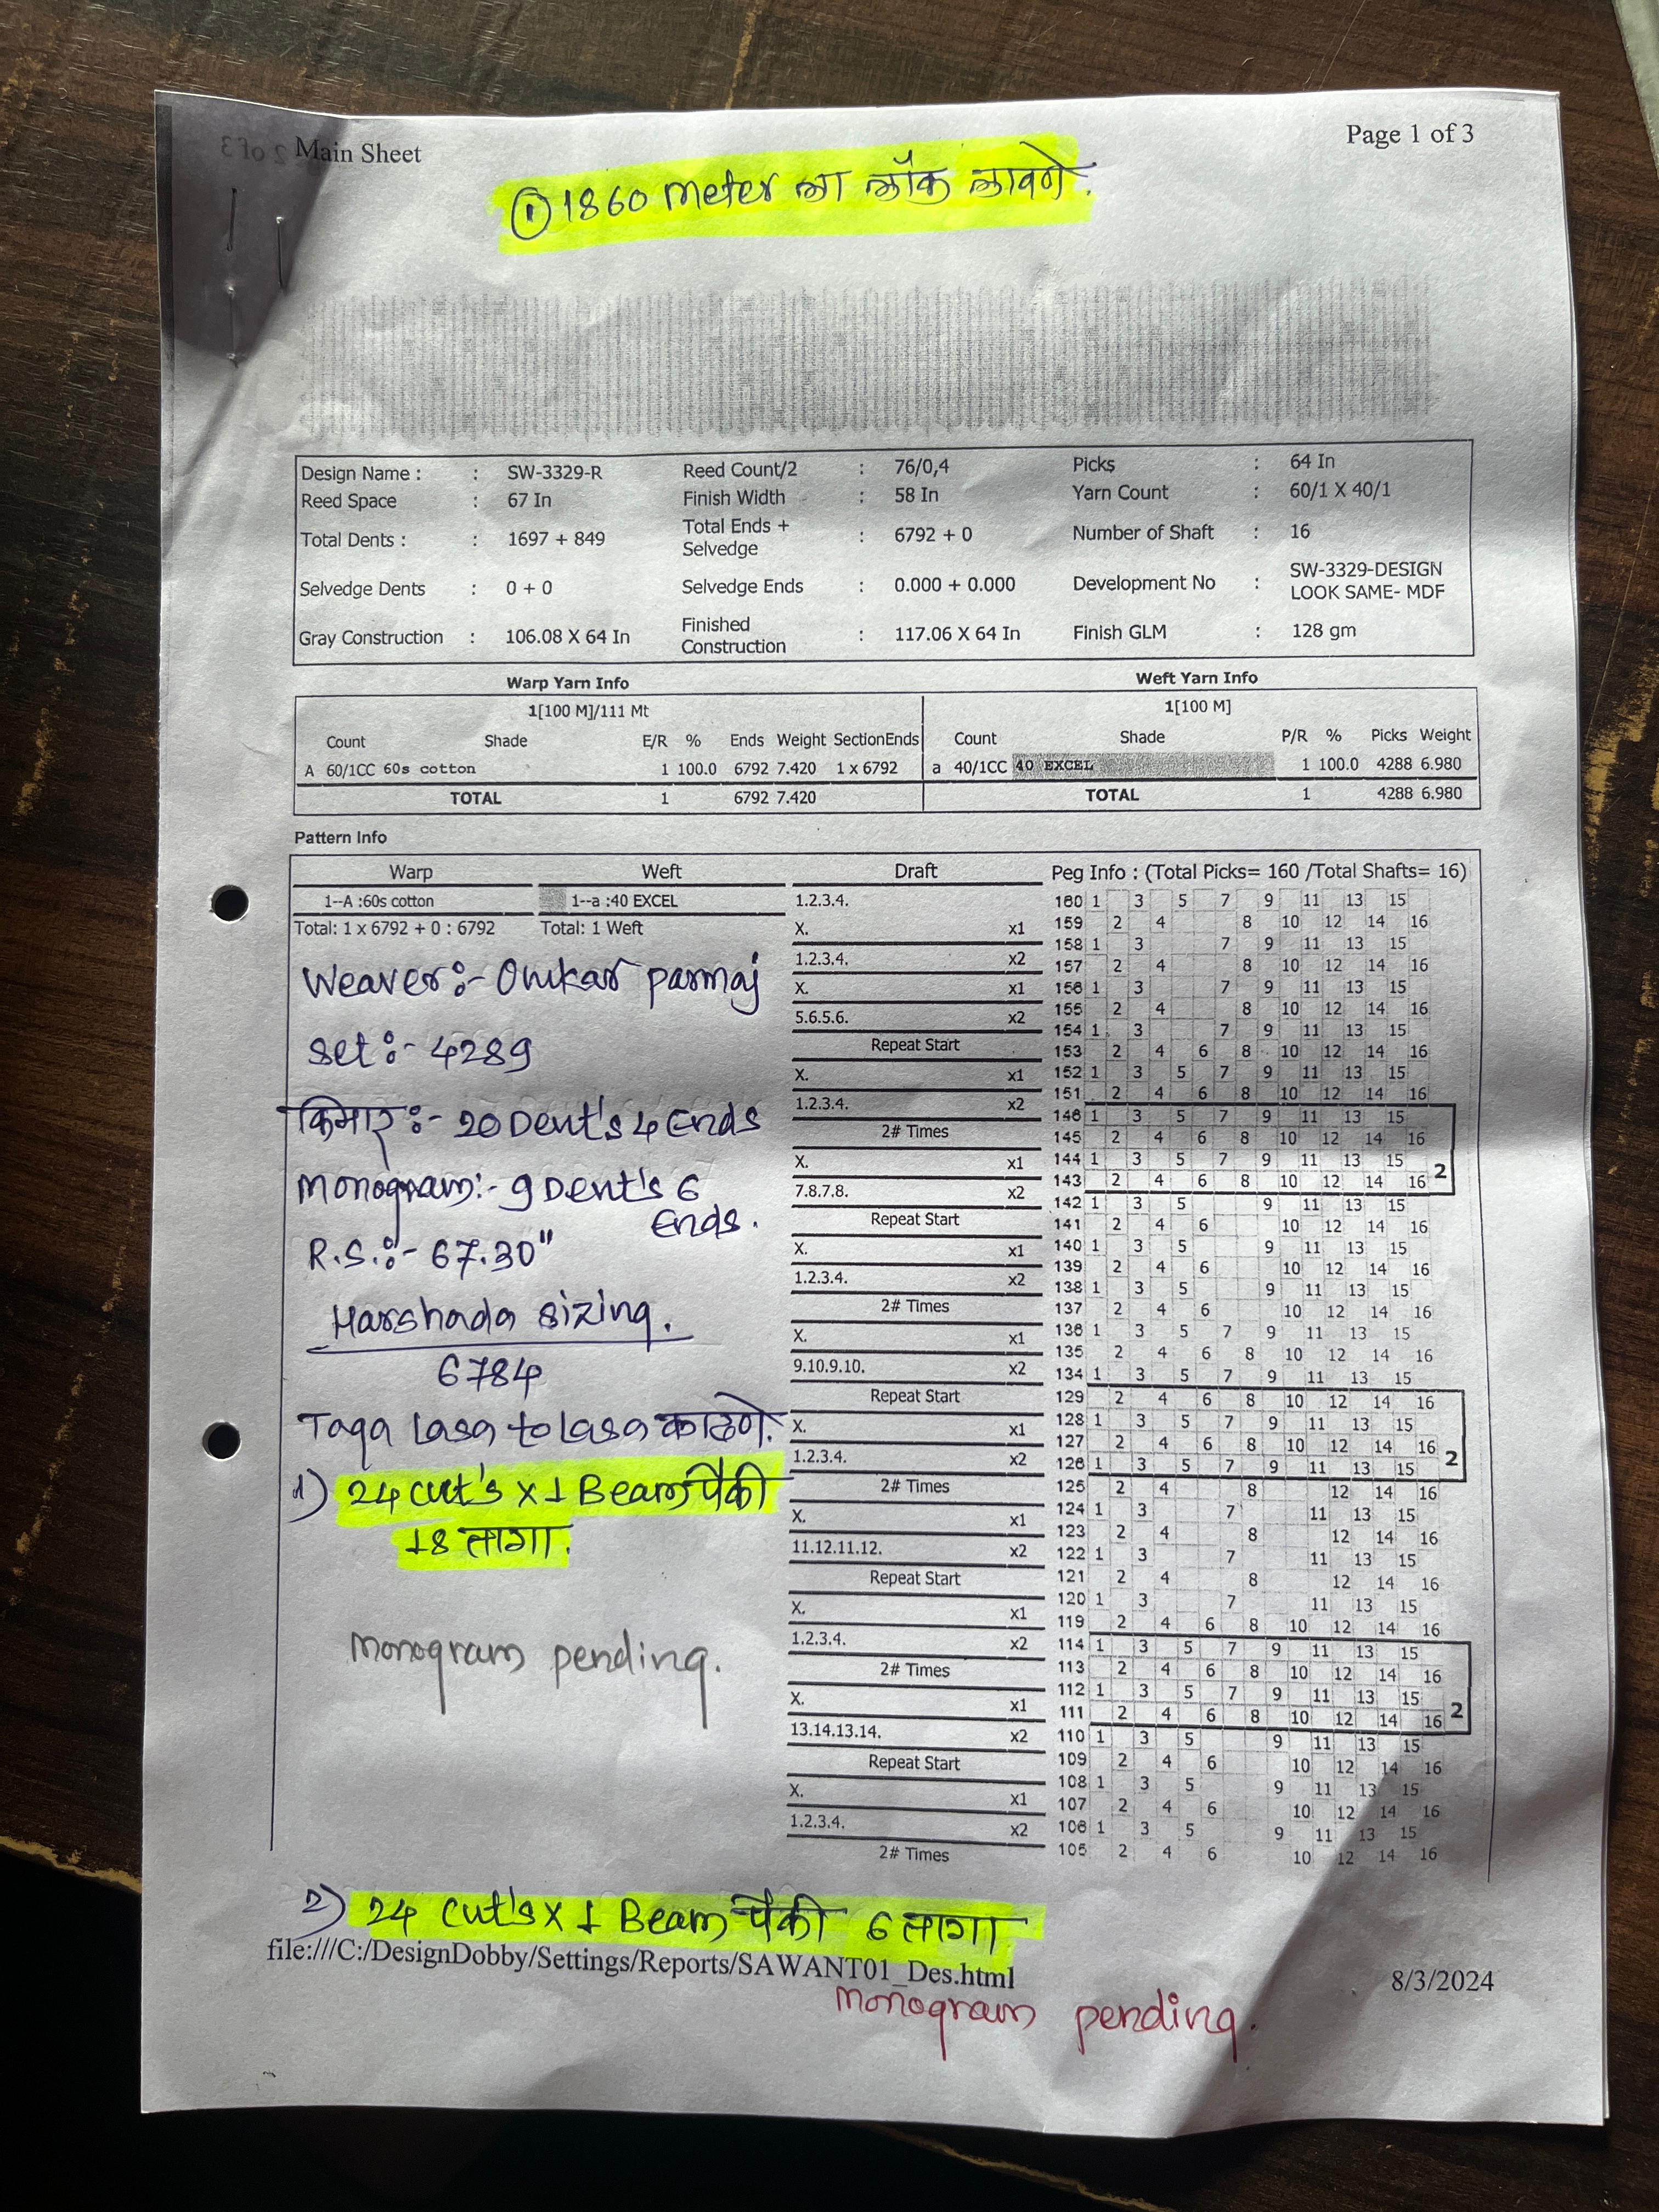 Main Sheet
Page 1 of 3
① 1860 meter ला लॉक लावणे.
Design Name : : SW-3329-R Reed Count/2 : 76/0,4 Picks : 64 In
Reed Space : 67 In Finish Width : 58 In Yarn Count : 60/1 X 40/1
Total Dents : : 1697 + 849 Total Ends + Selvedge : 6792 + 0 Number of Shaft : 16
Selvedge Dents : 0 + 0 Selvedge Ends : 0.000 + 0.000 Development No : SW-3329-DESIGN LOOK SAME- MDF
Gray Construction : 106.08 X 64 In Finished Construction : 117.06 X 64 In Finish GLM : 128 gm
Warp Yarn Info
1[100 M]/111 Mt
Count Shade E/R % Ends Weight SectionEnds
A 60/1CC 60s cotton 1 100.0 6792 7.420 1 x 6792
TOTAL 1 6792 7.420
Weft Yarn Info
1[100 M]
Count Shade P/R % Picks Weight
a 40/1CC 40 EXCEL 1 100.0 4288 6.980
TOTAL 1 4288 6.980
Pattern Info
Warp Weft
1--A :60s cotton 1--a :40 EXCEL
Total: 1 x 6792 + 0 : 6792 Total: 1 Weft
Weaver:- Omkar parmaj
set:- 4289
किनार:- 20 Dent's 4 Ends
Monogram:- 9 Dent's 6
Ends.
R.S.:- 67.30"
Harshada sizing.
6784
Taga Lasa to Lasa काढणे.
1) 24 cut's x 1 Beam पैकी
18 तागा.
Monogram pending.
Draft
1.2.3.4.
X. x1
1.2.3.4. x2
X. x1
5.6.5.6. x2
Repeat Start
X. x1
1.2.3.4. x2
2# Times
X. x1
7.8.7.8. x2
Repeat Start
X. x1
1.2.3.4. x2
2# Times
X. x1
9.10.9.10. x2
Repeat Start
X. x1
1.2.3.4. x2
2# Times
X. x1
11.12.11.12. x2
Repeat Start
X. x1
1.2.3.4. x2
2# Times
X. x1
13.14.13.14. x2
Repeat Start
X. x1
1.2.3.4. x2
2# Times
Peg Info : (Total Picks= 160 /Total Shafts= 16)
160 1 3 5 7 9 11 13 15
159 2 4 8 10 12 14 16
158 1 3 7 9 11 13 15
157 2 4 8 10 12 14 16
156 1 3 7 9 11 13 15
155 2 4 8 10 12 14 16
154 1 3 7 9 11 13 15
153 2 4 6 8 10 12 14 16
152 1 3 5 7 9 11 13 15
151 2 4 6 8 10 12 14 16
146 1 3 5 7 9 11 13 15
145 2 4 6 8 10 12 14 16
144 1 3 5 7 9 11 13 15
143 2 4 6 8 10 12 14 16
2
142 1 3 5 9 11 13 15
141 2 4 6 10 12 14 16
140 1 3 5 9 11 13 15
139 2 4 6 10 12 14 16
138 1 3 5 9 11 13 15
137 2 4 6 10 12 14 16
136 1 3 5 7 9 11 13 15
135 2 4 6 8 10 12 14 16
134 1 3 5 7 9 11 13 15
129 2 4 6 8 10 12 14 16
128 1 3 5 7 9 11 13 15
127 2 4 6 8 10 12 14 16
126 1 3 5 7 9 11 13 15
2
125 2 4 8 12 14 16
124 1 3 7 11 13 15
123 2 4 8 12 14 16
122 1 3 7 11 13 15
121 2 4 8 12 14 16
120 1 3 7 11 13 15
119 2 4 6 8 10 12 14 16
114 1 3 5 7 9 11 13 15
113 2 4 6 8 10 12 14 16
112 1 3 5 7 9 11 13 15
111 2 4 6 8 10 12 14 16
2
110 1 3 5 9 11 13 15
109 2 4 6 10 12 14 16
108 1 3 5 9 11 13 15
107 2 4 6 10 12 14 16
106 1 3 5 9 11 13 15
105 2 4 6 10 12 14 16
2) 24 cut's x 1 Beam पैकी 6 तागा
file:///C:/DesignDobby/Settings/Reports/SAWANT01_Des.html
8/3/2024
Monogram pending.